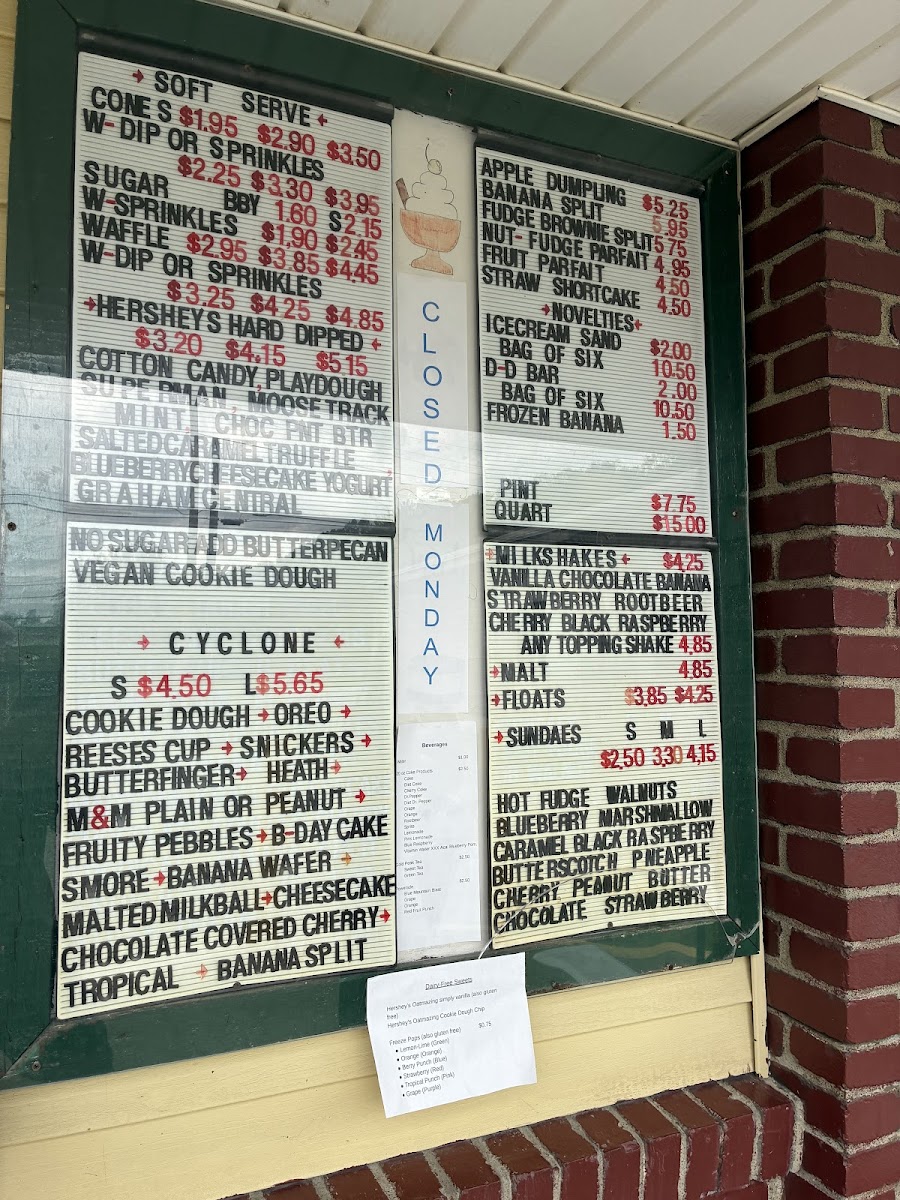 → SOFT SERVE ←
CONES $1.95 $2.90 $3.50
W-DIP OR SPRINKLES
$2.25 $3.30 $3.95
SUGAR BBY 1.60 S 2.15
W-SPRINKLES $1.90 $2.45
WAFFLE $2.95 $3.85 $4.45
W-DIP OR SPRINKLES
$3.25 $4.25 $4.85
→HERSHEYS HARD DIPPED ←
$3.20 $4.15 $5.15
COTTON CANDY, PLAYDOUGH
SUPERMAN, MOOSETRACK
MINT CHOC PNT BTR
SALTEDCARAMELTRUFFLE
BLUEBERRYCHEESECAKE YOGURT
GRAHAM CENTRAL
NO SUGAR ADD BUTTERPECAN
VEGAN COOKIE DOUGH
→ CYCLONE ←
S $4.50 L $5.65
COOKIE DOUGH → OREO →
REESES CUP → SNICKERS →
BUTTERFINGER → HEATH →
M&M PLAIN OR PEANUT →
FRUITY PEBBLES → B-DAY CAKE
SMORE → BANANA WAFER →
MALTED MILKBALL → CHEESECAKE
CHOCOLATE COVERED CHERRY →
TROPICAL → BANANA SPLIT
CLOSED MONDAY
Beverages
$2.50
Coke Products
Coke
Diet Coke
Cherry Coke
Dr Pepper
Diet Dr. Pepper
Grape
Orange
Rootbeer
Sprite
Lemonade
Pink Lemonade
Blue Raspberry
$2.50
Sweet Tea
Green Tea
$2.50
Blue Mountain Blast
Grape
Orange
Red Fruit Punch
APPLE DUMPLING $5.25
BANANA SPLIT 5.95
FUDGE BROWNIE SPLIT 5 75
NUT-FUDGE PARFAIT 4.95
FRUIT PARFAIT 4.50
STRAW SHORTCAKE 4.50
→NOVELTIES←
ICECREAM SAND $2.00
BAG OF SIX 10.50
D-D BAR 2.00
BAG OF SIX 10.50
FROZEN BANANA 1.50
PINT $7.75
QUART $15.00
→MILKSHAKES← $4.25
VANILLA CHOCOLATE BANANA
STRAWBERRY ROOTBEER
CHERRY BLACK RASPBERRY
ANY TOPPING SHAKE 4.85
→MALT 4.85
→FLOATS $3.85 $4.25
→SUNDAES S M L
$2.50 3.30 4.15
HOT FUDGE WALNUTS
BLUEBERRY MARSHMALLOW
CARAMEL BLACK RASPBERRY
BUTTERSCOTCH PNEAPPLE
CHERRY PEANUT BUTTER
CHOCOLATE STRAWBERRY
Dairy Free Sweets
Hershey's Oatmazing simply vanilla (also gluten
free)
Hershey's Oatmazing Cookie Dough Chip
Freeze Pops (also gluten free) $0.75
● Lemon-Lime (Green)
● Orange (Orange)
● Berry Punch (Blue)
● Strawberry (Red)
● Tropical Punch (Pink)
● Grape (Purple)